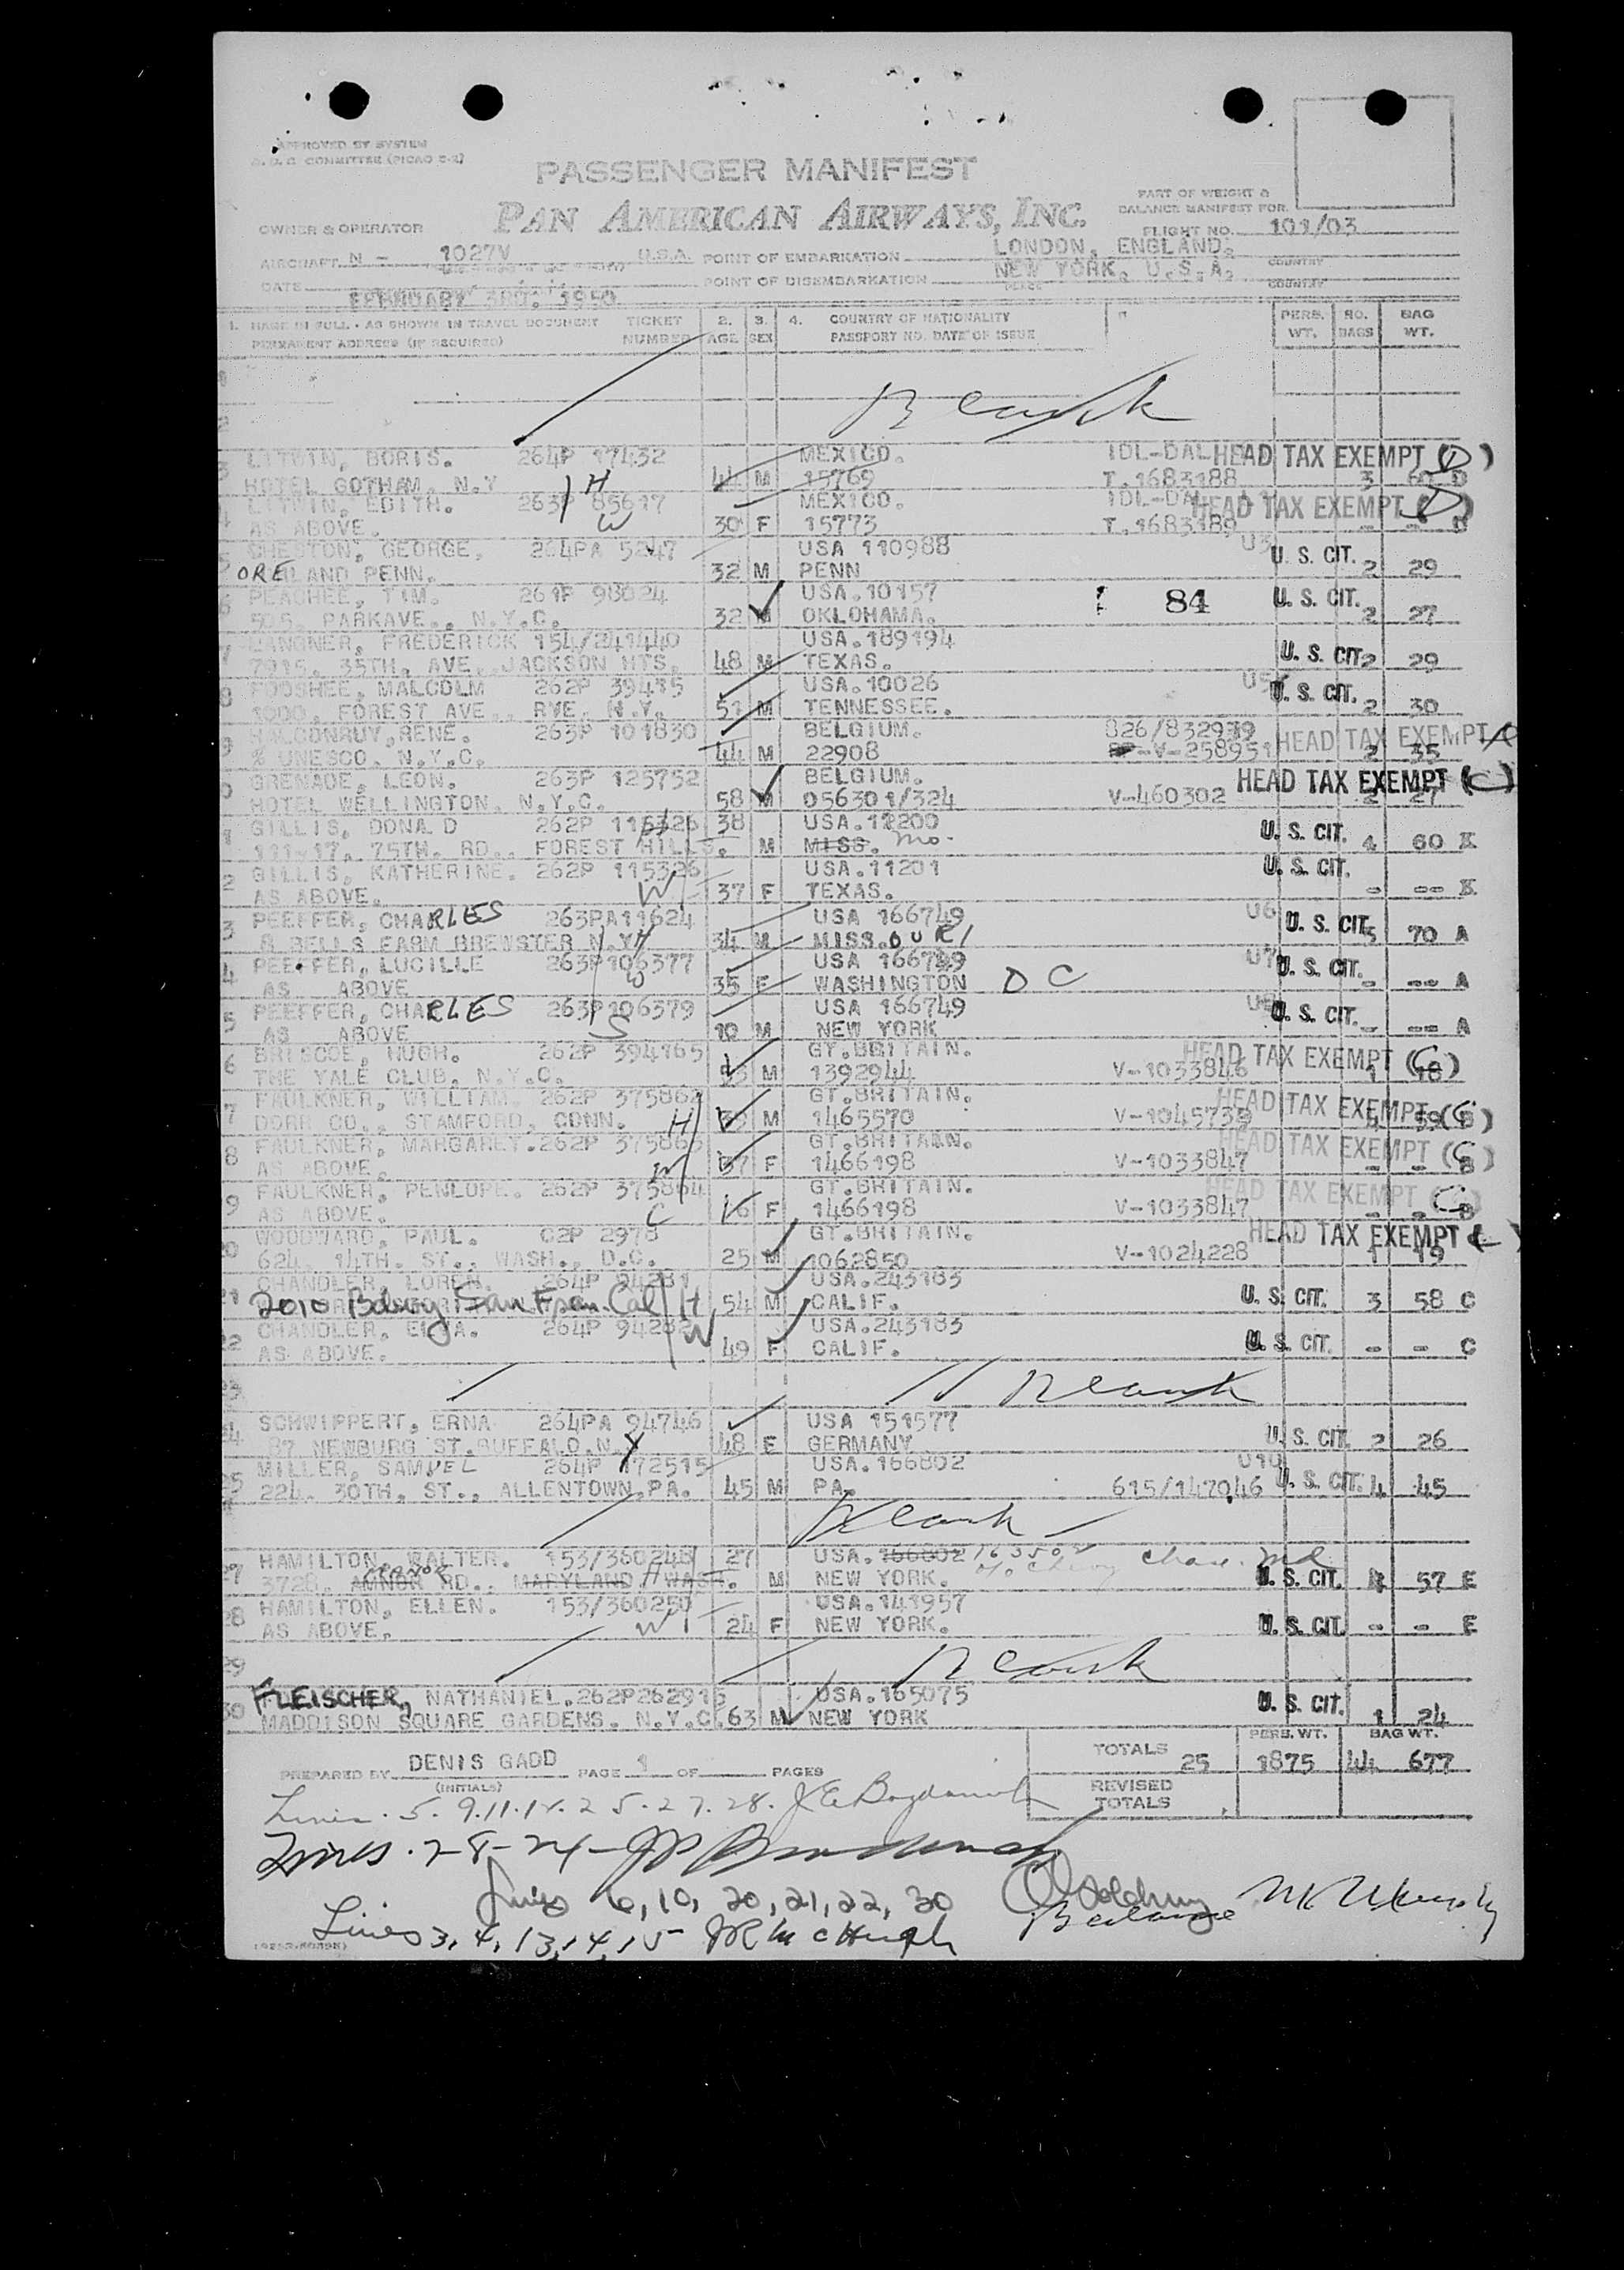 APPROVED BY SYSTEM
COMMITTEE (PICAO
PASSENGER MANIFEST
PAN AMERICAN AIRWAYS, INC.
PART OF WEIGHT &
BALANCE MANIFEST FOR
OWNER & OPERATOR
FLIGHT NO. 101/03
AIRCRAFT N - 1027V U.S.A. POINT OF EMBARKATION LONDON, ENGLAND. COUNTRY
DATE FEBRUARY 3RD, 1950 POINT OF DISEMBARKATION NEW YORK, U.S.A. COUNTRY
PLACE
1. NAME IN FULL - AS SHOWN IN TRAVEL DOCUMENT TICKET 2. 3. 4. COUNTRY OF NATIONALITY PERS. NO. BAG
PERMANENT ADDRESS (IF REQUIRED) NUMBER AGE SEX PASSPORT NO. DATE OF ISSUE WT. BAGS WT.
1
2 Blank
3 LITWIN, BORIS. 264P 17432 MEXICO. IDL-DAL HEAD TAX EXEMPT (D)
HOTEL GOTHAM, N.Y H 44 M 15769 T.1683188 3 60 D
4 LITWIN, EDITH. 263P 85617 MEXICO. IDL-DAL HEAD TAX EXEMPT (D)
AS ABOVE. W 30 F 15773 T.1683189 - - D
5 CHESTON, GEORGE. 264PA 5247 USA 110988 U3 U. S. CIT.
ORELAND PENN. 32 M PENN 2 29
6 PEACHEE, TIM. 261P 98024 USA.10157 84 U. S. CIT.
505, PARKAVE., N.Y.C. 32 M OKLOHAMA. 2 27
7 LANGNER, FREDERICK 154/241440 USA.189194 U. S. CIT.
7915, 35TH, AVE. JACKSON HTS. 48 M TEXAS. 2 29
8 FOOSHEE, MALCOLM 262P 39435 USA.10026 U5 U. S. CIT.
1000, FOREST AVE., RYE, N.Y. 51 M TENNESSEE. 2 30
9 RENE. 263P 101830 BELGIUM. 826/832939 HEAD TAX EXEMPT
% UNESCO. N.Y.C. 44 M 22908 V-258951 2 35
0 GRENADE, LEON. 263P 125752 BELGIUM. HEAD TAX EXEMPT (C)
HOTEL WELLINGTON, N.Y.C. 58 M 056301/324 V-460302 2 27
1 GILLIS, DONA D 262P 115326 38 USA.12200 U. S. CIT.
111-17, 75TH. RD., FOREST HILLS. M MISS. Mo. 4 60 K
2 GILLIS, KATHERINE. 262P 115326 USA.11201 U. S. CIT.
AS ABOVE. W 37 F TEXAS. - -- K
3 PEEFFER, CHARLES 263PA11624 USA 166749 U6 U. S. CIT.
BELLS FARM BREWSTER N.Y H 34 M MISSOURI 5 70 A
4 PEEFFER, LUCILLE 263P106377 USA 166749 U7 U. S. CIT.
AS ABOVE W 35 F WASHINGTON D C - -- A
5 PEEFFER, CHARLES 263P106379 USA 166749 U8 U. S. CIT.
AS ABOVE S 10 M NEW YORK - -- A
6 BRISCOE, HUGH. 262P 394165 GT.BRITAIN. HEAD TAX EXEMPT (C)
THE YALE CLUB, N.Y.C. 53 M 1392944 V-1033846 1 18
7 FAULKNER, WILLIAM. 262P 375862 GT.BRITAIN. HEAD TAX EXEMPT (C)
DORR CO., STAMFORD, CONN. H 39 M 1465570 V-1045735 59 B
8 FAULKNER, MARGARET. 262P 375863 GT.BRITAIN. HEAD TAX EXEMPT (C)
AS ABOVE. W 37 F 1466198 V-1033847 - - B
9 FAULKNER, PENLOPE. 262P 375864 GT.BRITAIN. HEAD TAX EXEMPT (C)
AS ABOVE. C 16 F 1466198 V-1033847 - - B
20 WOODWARD, PAUL. 02P 2978 GT.BRITAIN. HEAD TAX EXEMPT
624, 14TH. ST., WASH., D.C. 25 M 1062850 V-1024228 1 19
21 CHANDLER, LOREN. 264P 94281 USA.243183
2010 Bdwy San Fran. Cal H 54 M CALIF. U. S. CIT. 3 58 C
22 CHANDLER, E A. 264P 94282 W USA.243183
AS ABOVE. 49 F CALIF. U. S. CIT. - - C
23 Blank
24 SCHWIPPERT, ERNA 264PA 94746 USA 151577
87 NEWBURG ST. BUFFALO. N.Y 48 F GERMANY U. S. CIT. 2 26
25 MILLER, SAMUEL 264P 172515 USA.166802 U10
224. 30TH. ST., ALLENTOWN, PA. 45 M PA. 615/147046 U. S. CIT. 4 45
Blank
27 HAMILTON, WALTER. 153/360248 27 USA.166802 Chevy Chase. Md
3728, AMNOR MANOR RD., MARYLAND. WASH. H M NEW YORK. U. S. CIT. 4 57 E
28 HAMILTON, ELLEN. 153/360250 USA.141957
AS ABOVE. W 24 F NEW YORK. U. S. CIT. - - E
29 Blank
30 FLEISCHER, NATHANIEL. 262P262915 USA.165075
MADDISON SQUARE GARDENS. N.Y.C. 63 M NEW YORK U. S. CIT. 1 24
PREPARED BY DENIS GADD PAGE 1 OF PAGES
(INITIALS)
TOTALS 25 PERS. WT. 1875 44 BAG WT. 677
REVISED
TOTALS
Lines. 5. 9. 11. 12. 25. 27. 28.
Lines. 7-8-24-
Lines 6, 10, 20, 21, 22, 30
Balance
Lines 3, 4, 13, 14, 15 JR McHugh